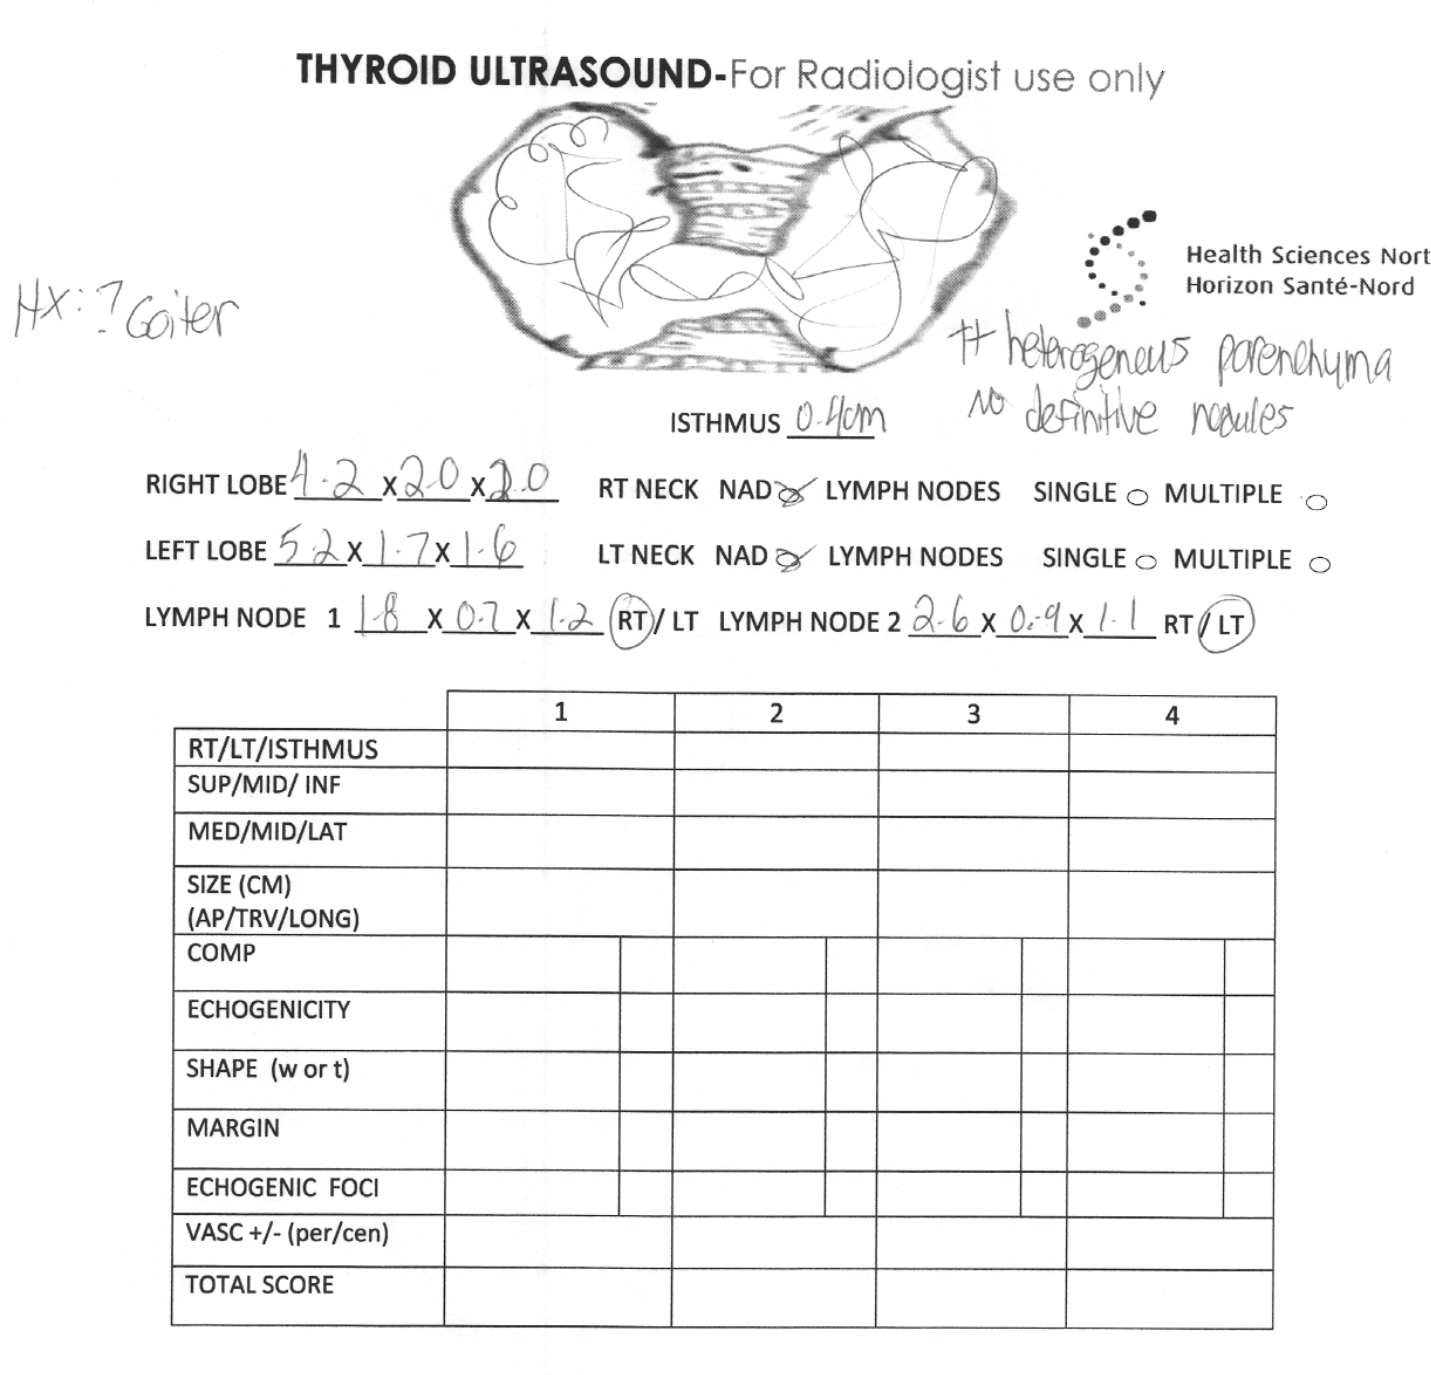 THYROID ULTRASOUND-For Radiologist use only
Health Sciences Nort
Horizon Santé-Nord
Hx: ? Goiter
# heterogeneus parenchyma
No definitive nodules
ISTHMUS 0.4cm
RIGHT LOBE 4.2 x 2.0 x 2.0 RT NECK NAD LYMPH NODES SINGLE MULTIPLE
LEFT LOBE 5.2 x 1.7 x 1.6 LT NECK NAD LYMPH NODES SINGLE MULTIPLE
LYMPH NODE 1 1.8 x 0.7 x 1.2 RT/ LT LYMPH NODE 2 2.6 x 0.9 x 1.1 RT / LT
1 2 3 4
RT/LT/ISTHMUS
SUP/MID/ INF
MED/MID/LAT
SIZE (CM)
(AP/TRV/LONG)
COMP
ECHOGENICITY
SHAPE (w or t)
MARGIN
ECHOGENIC FOCI
VASC +/- (per/cen)
TOTAL SCORE